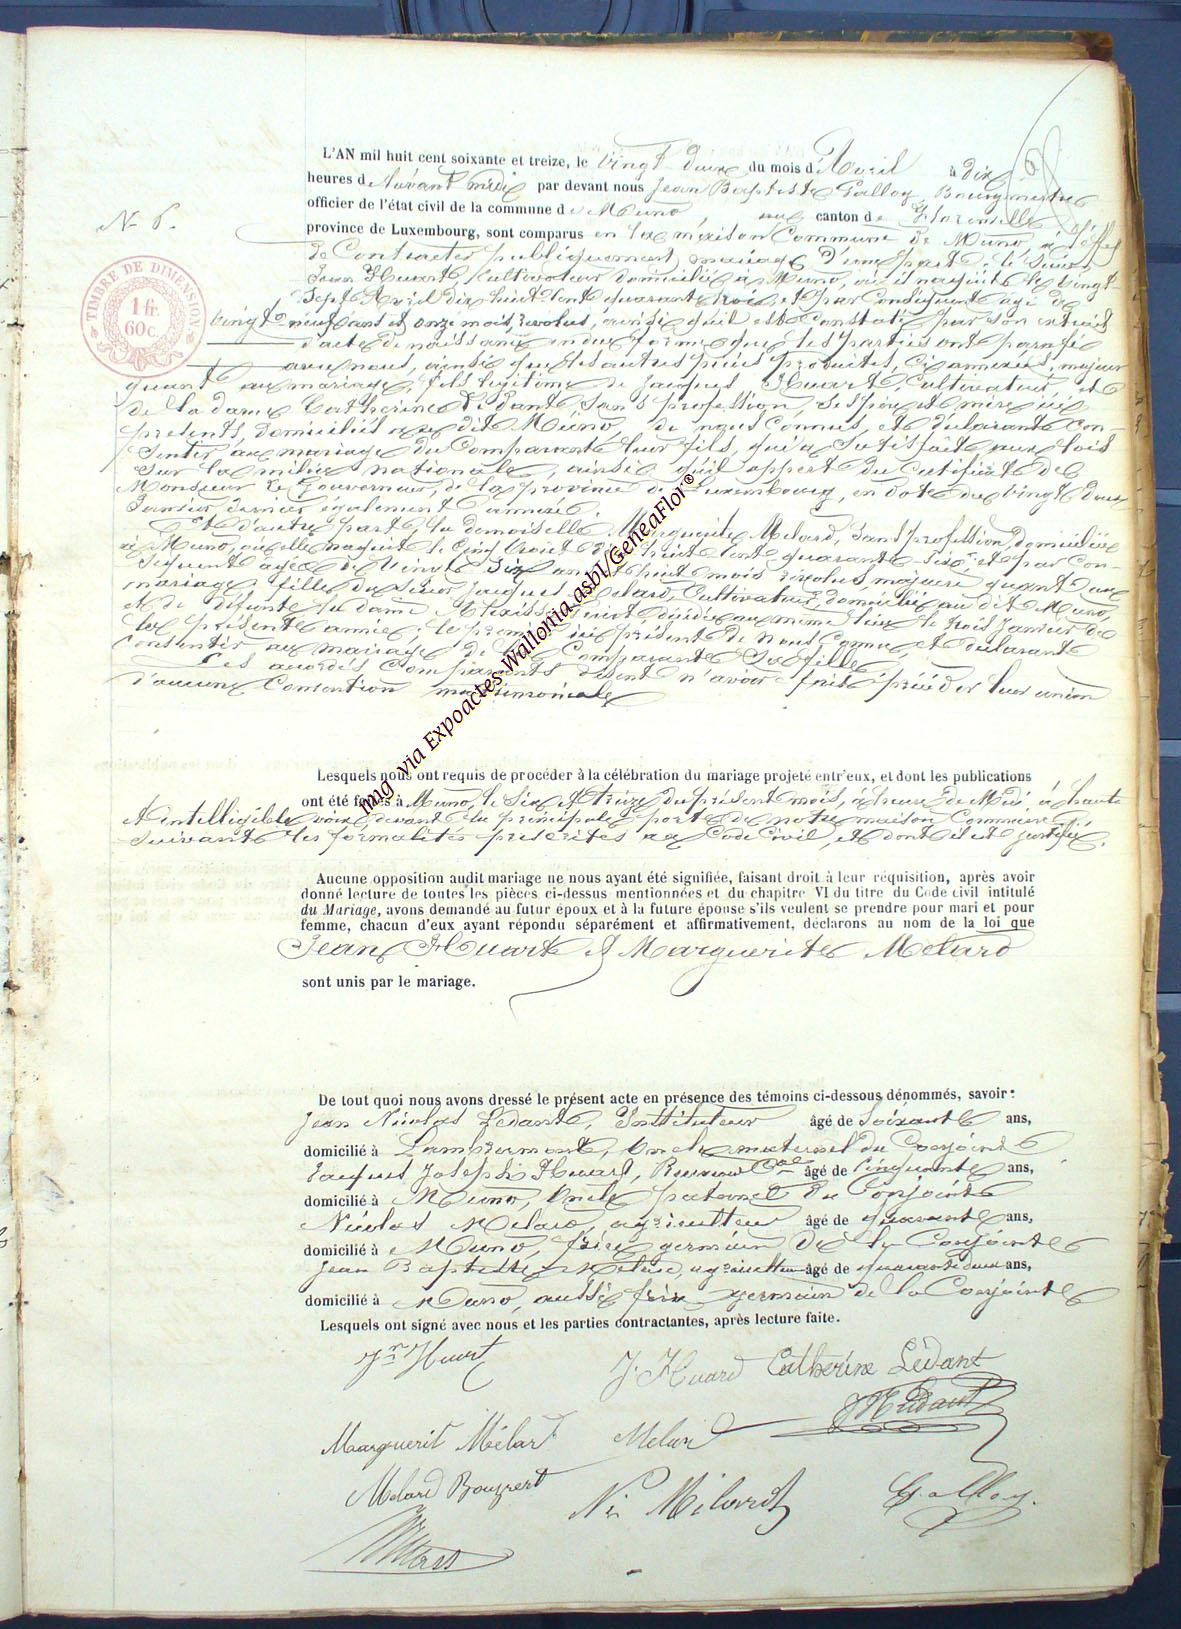 L'AN mil huit cent soixante et treize, le vingt deux du mois d'Avril à dix
heures d'avant midi par devant nous Jean Baptiste Galloy, Bourgmestre
officier de l'état civil de la commune de Muno, canton de Florenville
N° 6.
province de Luxembourg, sont comparus en la maison Commune de Muno, à l'effet
de Contracter publiquement mariage, d'une part, le Sieur
Jean Huart, Cultivateur domicilié à Muno, où il naquit le vingt
TIMBRE DE DIMENSION
1 fr.
60c.
sept Avril dix huit cent quarante trois, et par Conséquent agé de
vingt neuf ans et onze mois révolus, ainsi qu'il est Constaté par son extrait
d'acte de naissance en due forme que les parties ont paraphé
avec nous, ainsi que les autres pièces produites, ci annexées, majeur
quant au mariage, fils légitime de Jacques Huart, Cultivateur et
de la dame Catherine Lédant, sans profession, ses père et mère ici
présents, domiciliés au dit Muno, de nous Connus, et déclarant Con-
sentir au mariage du Comparant leur fils, qui a satisfait aux lois
sur la milice nationale, ainsi qu'il appert du Certificat de
Monsieur le Gouverneur, de la province de Luxembourg, en date du vingt deux
Janvier dernier également annexé.
Et d'autre part, la demoiselle Marguerite Melard, Sans profession, domiciliée
à Muno, où elle naquit le Cinq Août dix huit cent quarante-six, et par Con-
séquent agée de vingt six ans et huit mois révolus, majeure quant au
mariage, fille du Sieur Jacques Melard, Cultivateur, domicilié au dit Muno,
et de défunte la dame décédée au même lieu, le trois Janvier de
la présente année; le premier ici présent de nous Connu et déclarant
Consentir au mariage de la Comparante Sa fille.
Les Comparants disent n'avoir fait précéder leur union
d'aucune Convention matrimoniale
img via Expoactes-Wallonia.asbl/GeneaFlor®
Lesquels nous ont requis de procéder à la célébration du mariage projeté entr'eux, et dont les publications
ont été faites à Muno, le Six et treize du présent mois, à heure de Midi à haute
et intelligible voix devant la principale porte de notre maison Commune,
suivant les formalités prescrites au Code Civil, et dont il est justifié.
Aucune opposition audit mariage ne nous ayant été signifiée, faisant droit à leur réquisition, après avoir
donné lecture de toutes les pièces ci-dessus mentionnées et du chapitre VI du titre du Code civil intitulé
du Mariage, avons demandé au futur époux et à la future épouse s'ils veulent se prendre pour mari et pour
femme, chacun d'eux ayant répondu séparément et affirmativement, déclarons au nom de la loi que
Jean Huart et Marguerite Melard
sont unis par le mariage.
De tout quoi nous avons dressé le présent acte en présence des témoins ci-dessous dénommés, savoir:
Jean Nicolas Lédant, Instituteur âgé de Soixante ans,
domicilié à Lambermont, Oncle maternel du Conjoint
Jacques Joseph Huart, âgé de cinquante ans,
domicilié à Muno, Oncle paternel du Conjoint
Nicolas Melard, agriculteur âgé de quarante ans,
domicilié à Muno, frère germain de la Conjointe
Jean Baptiste Melard, agriculteur âgé de quarante deux ans,
domicilié à Muno, aussi frère germain de la Conjointe
Lesquels ont signé avec nous et les parties contractantes, après lecture faite.
Jn Huart
J. Huard Catherine Lédant
JNLédant
Marguerit Mélard Melard
Melard
Ni Milard Galloy